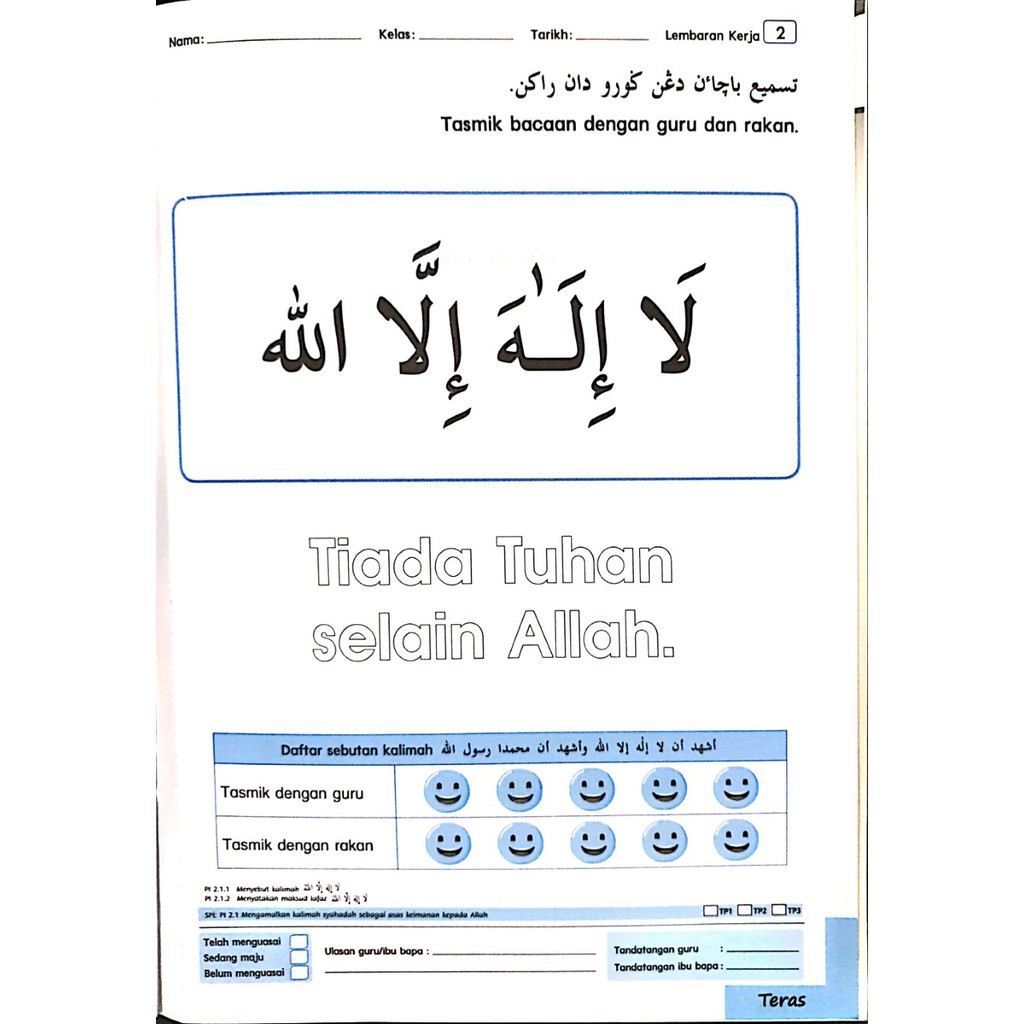 Nama: Kelas: Tarikh: Lembaran Kerja 2
تسميع باچاءن دڠن ݢورو دان راکن.
Tasmik bacaan dengan guru dan rakan.
لَا إِلَـٰهَ إِلَّا الله
Tiada Tuhan
selain Allah.
Daftar sebutan kalimah أشهد أن لا إله إلا الله وأشهد أن محمدا رسول الله
Tasmik dengan guru
Tasmik dengan rakan
PI 2.1.1 Menyebut kalimah لا إله إلا الله
PI 2.1.2 Menyatakan maksud lafaz لا إله إلا الله
SPE: PI 2.1 Mengamalkan kalimah syahadah sebagai asas keimanan kepada Allah TP1 TP2 TP3
Telah menguasai
Sedang maju
Belum menguasai
Ulasan guru/ibu bapa :
Tandatangan guru :
Tandatangan ibu bapa :
Teras